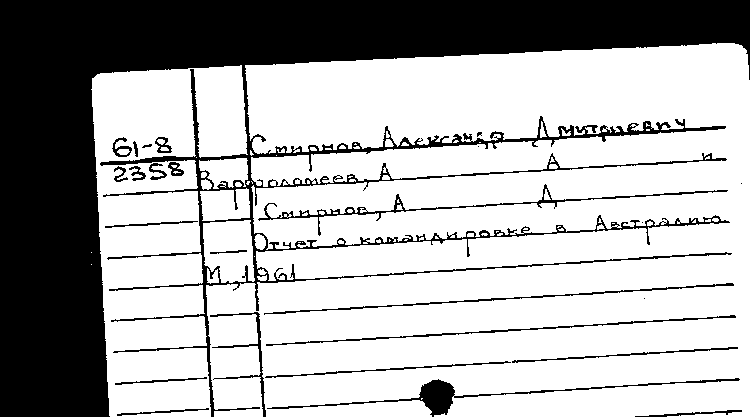 61-8
2358
Смирнов, Александр Дмитриевич
Варфоломеев, А А и
Смирнов, А Д
Отчет о командировке в Австралию
М., 1961